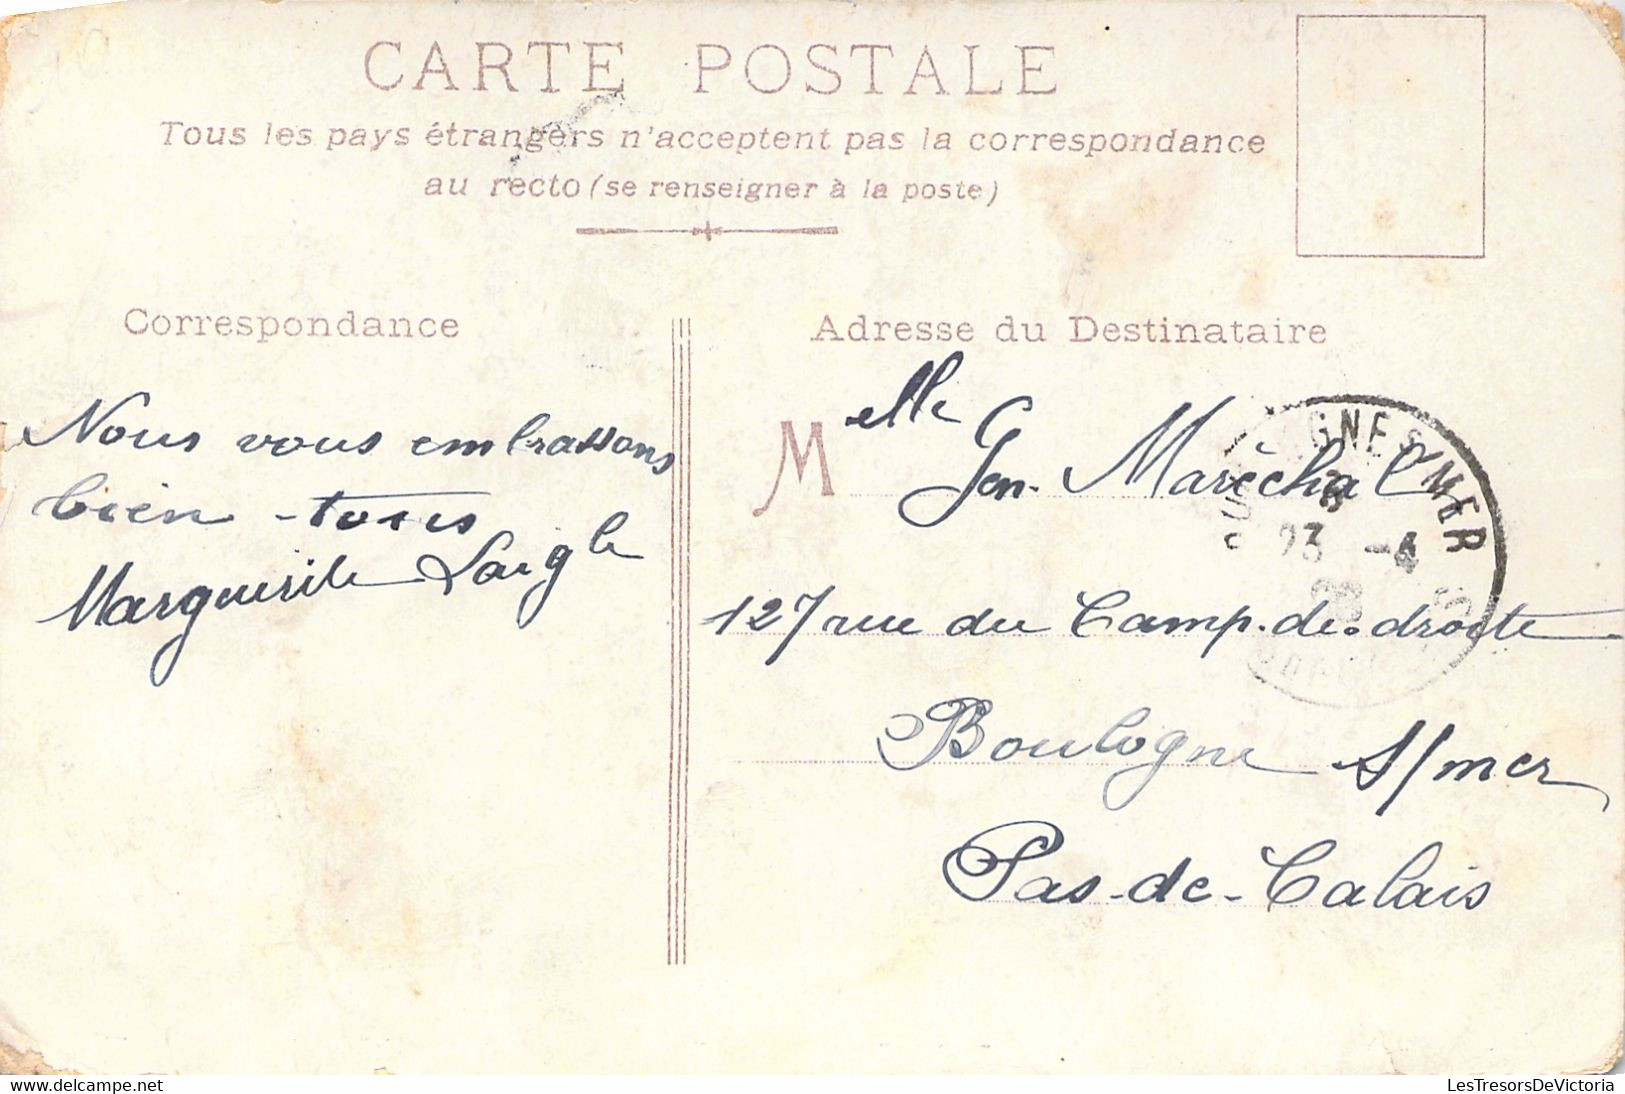 CARTE POSTALE
Tous les pays étrangers n'acceptent pas la correspondance
au recto (se renseigner à la poste)
Correspondance
Nous vous embrassons
bien tous
Marguerite Laigle
Adresse du Destinataire
Melle Gen. Maréchal
127 rue du Camp-de-droite
Boulogne s/mer
Pas-de-Calais
GNE S/MER
23 -4
LesTresorsDeVictoria